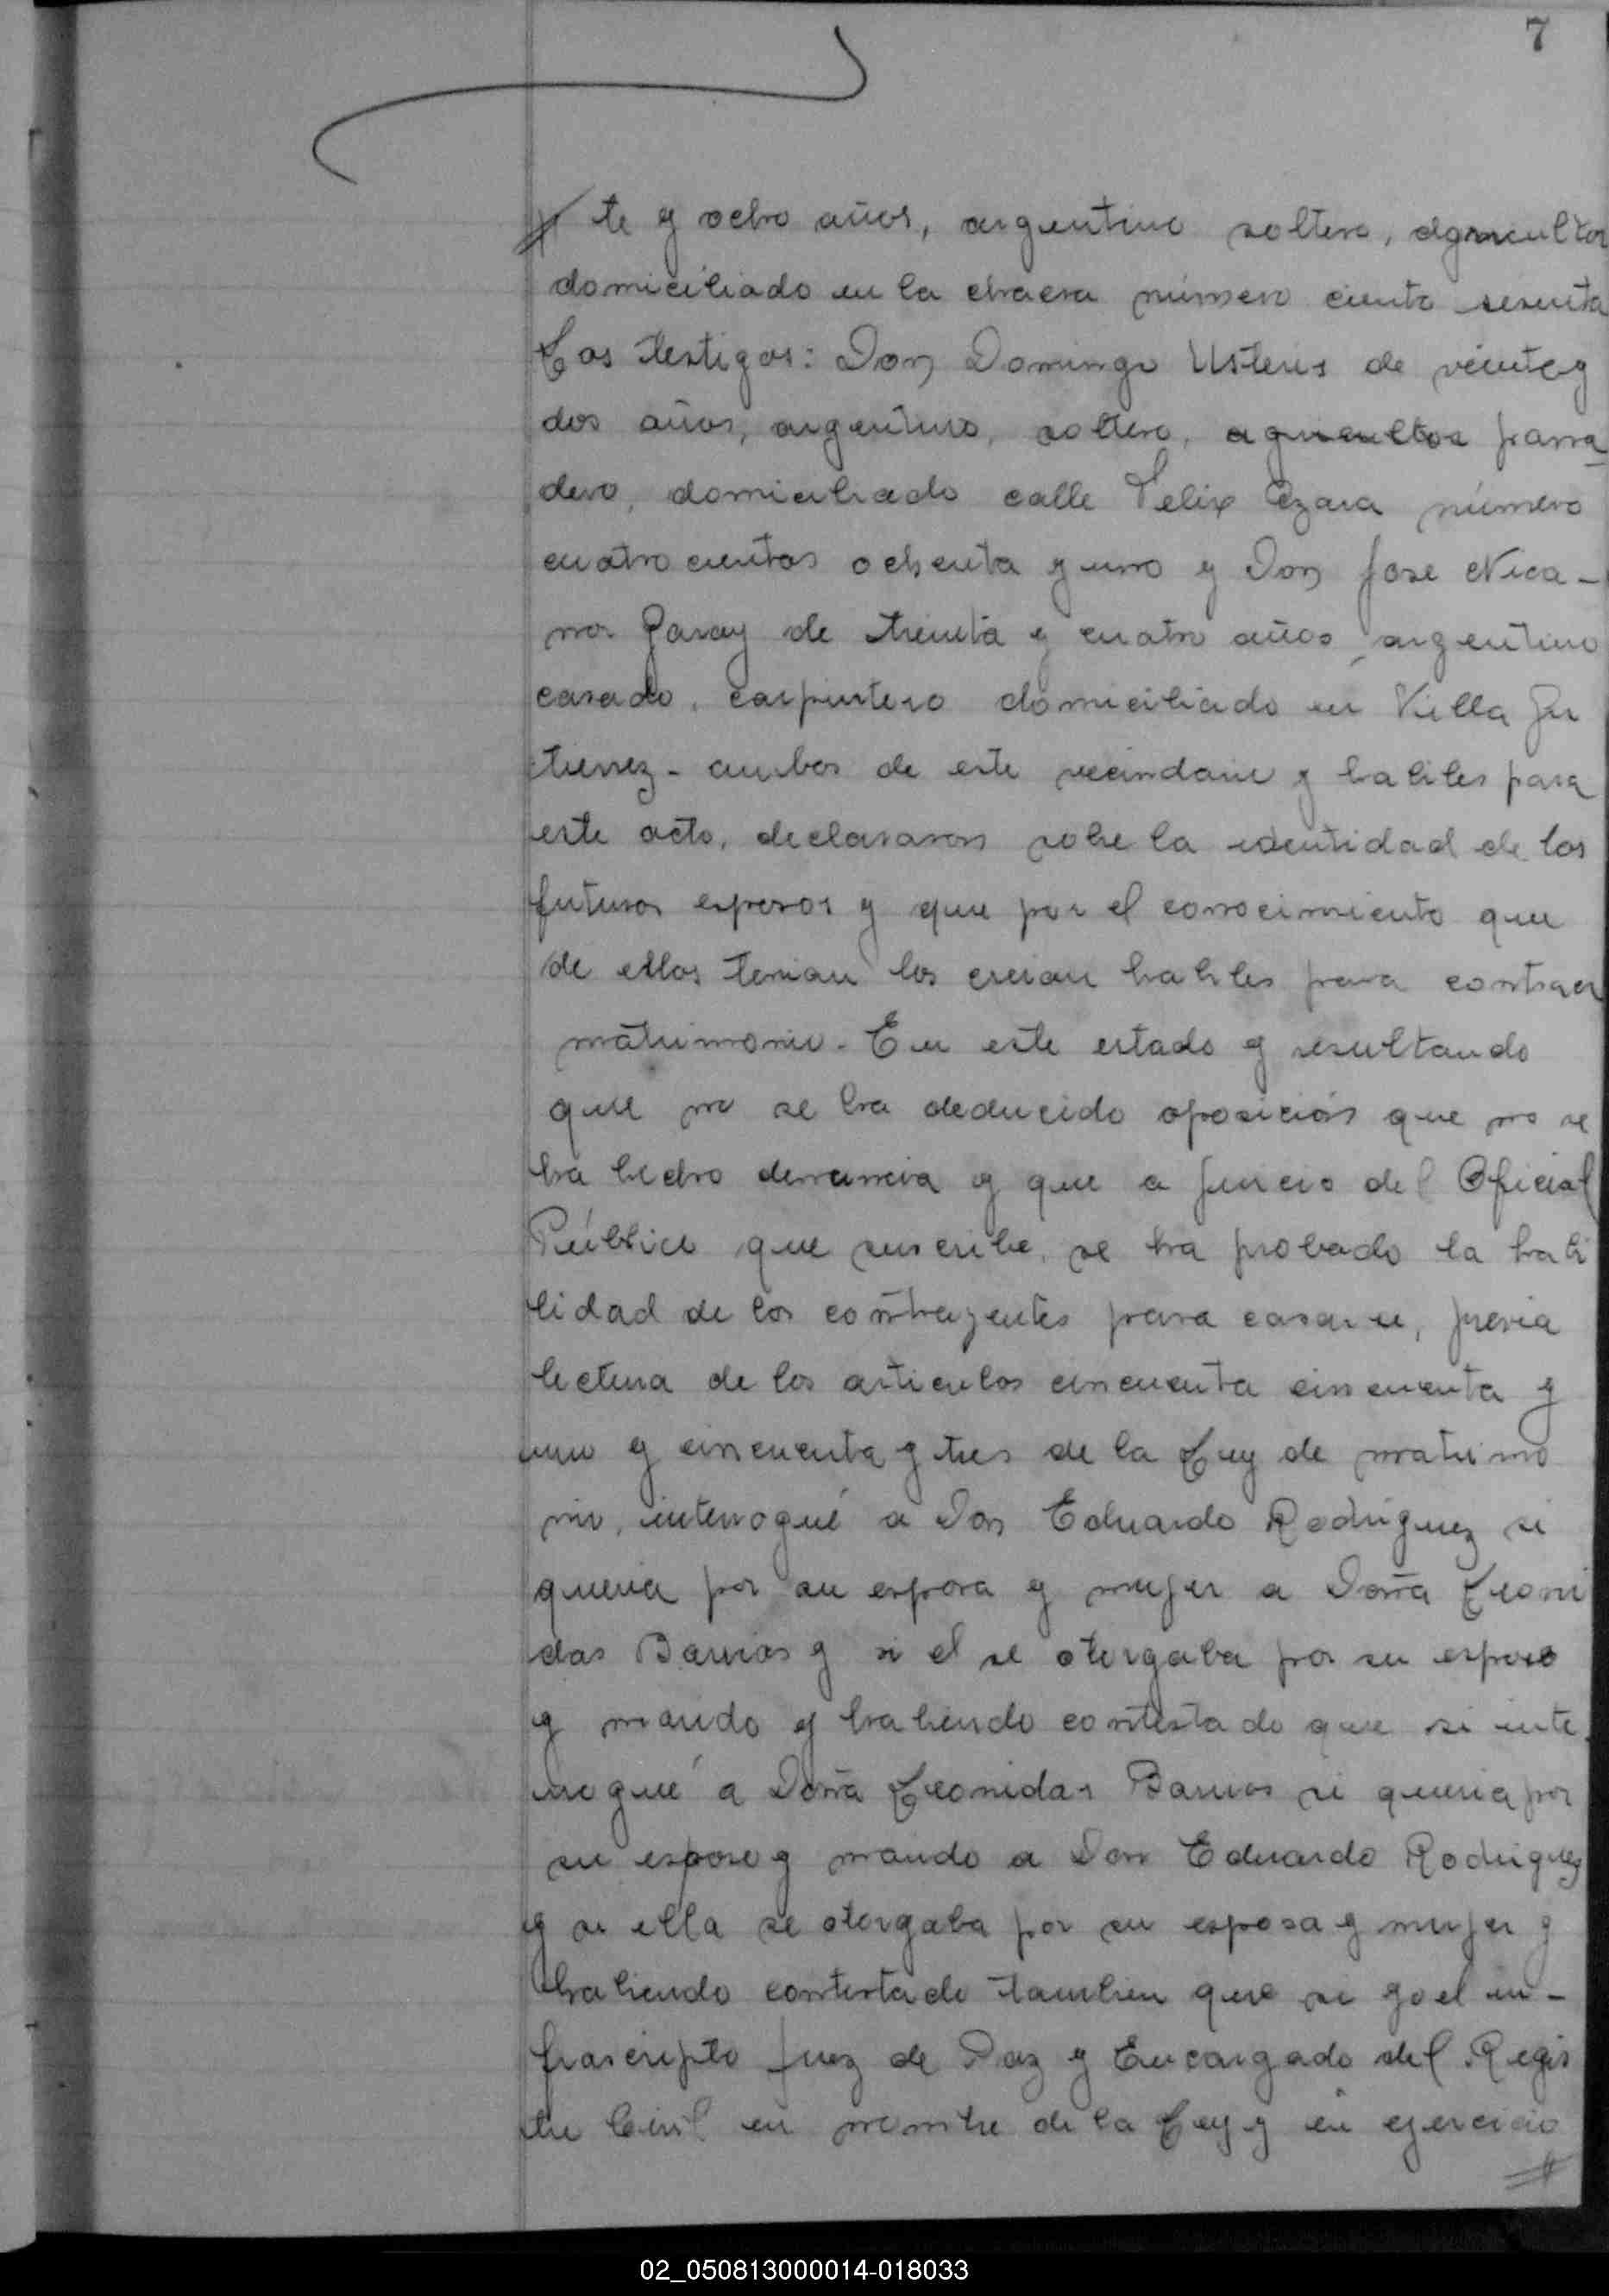 7
te y ocho años, argentino soltero, agricultor
domiciliado en la chacra número ciento sesenta
Los testigos: Don Domingo Usteris de veinte y
dos años, argentino, soltero, agricultor parra-
dero, domiciliado calle Felix Azara número
cuatrocientos ochenta y uno y Don José Nica-
nor Garay de treinta y cuatro años, argentino
casado, carpintero domiciliado en Villa Gu
tierrez - ambos de este vecindario y habiles para
este acto, declararon sobre la identidad de los
futuros esposos y que por el conocimiento que
de ellos tenian los creian habiles para contraer
matrimonio. En este estado y resultando
que no se ha deducido oposición que no se
ha hecho denuncia y que a juicio del Oficial
Público que suscribe, se ha probado la habi
lidad de los contrayentes para casarse, previa
lectura de los articulos cincuenta cincuenta y
uno y cincuenta y tres de la Ley de matrimo
nio, interrogué a Don Eduardo Rodriguez si
queria por su esposa y mujer a Doña Leoni
das Barrios y si el se otorgaba por su esposo
y marido y habiendo contestado que si inte
rrogué a Doña Leonidas Barrios si queria por
su esposo y marido a Don Eduardo Rodriguez
y si ella se otorgaba por su esposa y mujer y
habiendo contestado tambien que si yo el in-
frascripto Juez de Paz y Encargado del Regis
tro Civil en nombre de la Ley y en ejercicio
02_050813000014-018033